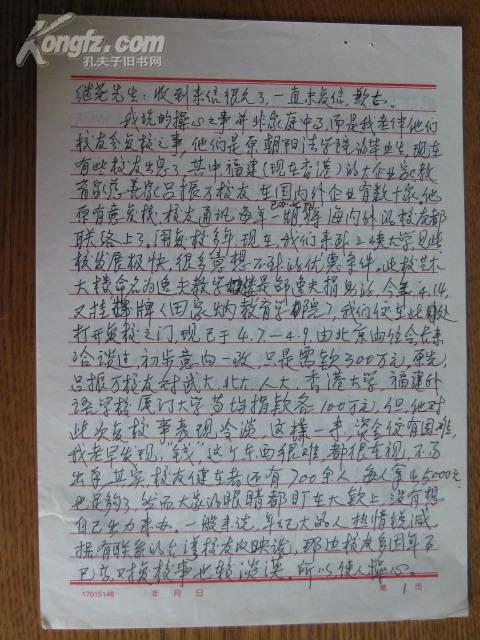 Kongfz.com
孔夫子旧书网
继尧先生：收到来信很久了，一直未复信，歉甚。
我说的操心之事并非家庭中事，而是我老伴他们
校友会复校之事，他们是原朝阳法学院的毕业生，现在
有些校友出息了，其中福建（现在香港）的大企业家、教
育家、慈善家吕振万校友，在国内外企业有数十家，他
原有意复校，校友通讯每年一期将海内外的校友都
联络上了。闹复校多年，现在，我们来到三峡大学见此
校发展极快，很多意想不到的优惠条件，此校艺术
大楼命名为逸夫教学楼是邵逸夫捐助的，今年4.14.
又挂牌（田家炳教育学院），我们便在此处
打开复校之门，现已于4.7—4.9.由北京由位会长来
洽谈过，初步意向一致，只是需款300万元，原先，
吕振万校友对武大、北大、人大、香港大学、福建外
语学校、厦门大学等均捐款各100万元，但，他对
此次复校事表现冷淡，这样一来，资金便有困难，
我老早发现，“钱”这个东西很难，都很重视，不易
出手，其实，校友健在者还有700余人，每人拿出5000元
也足够了，然而大家的眼睛都盯在大款上，没有想
自己出力来办。一般来说，年纪大的人热情锐减，
据有联系的台湾校友反映说，那边校友多因年事
已高，对复校事也较淡漠，所以，使人操心。
17015146
年 月 日
第 1 页